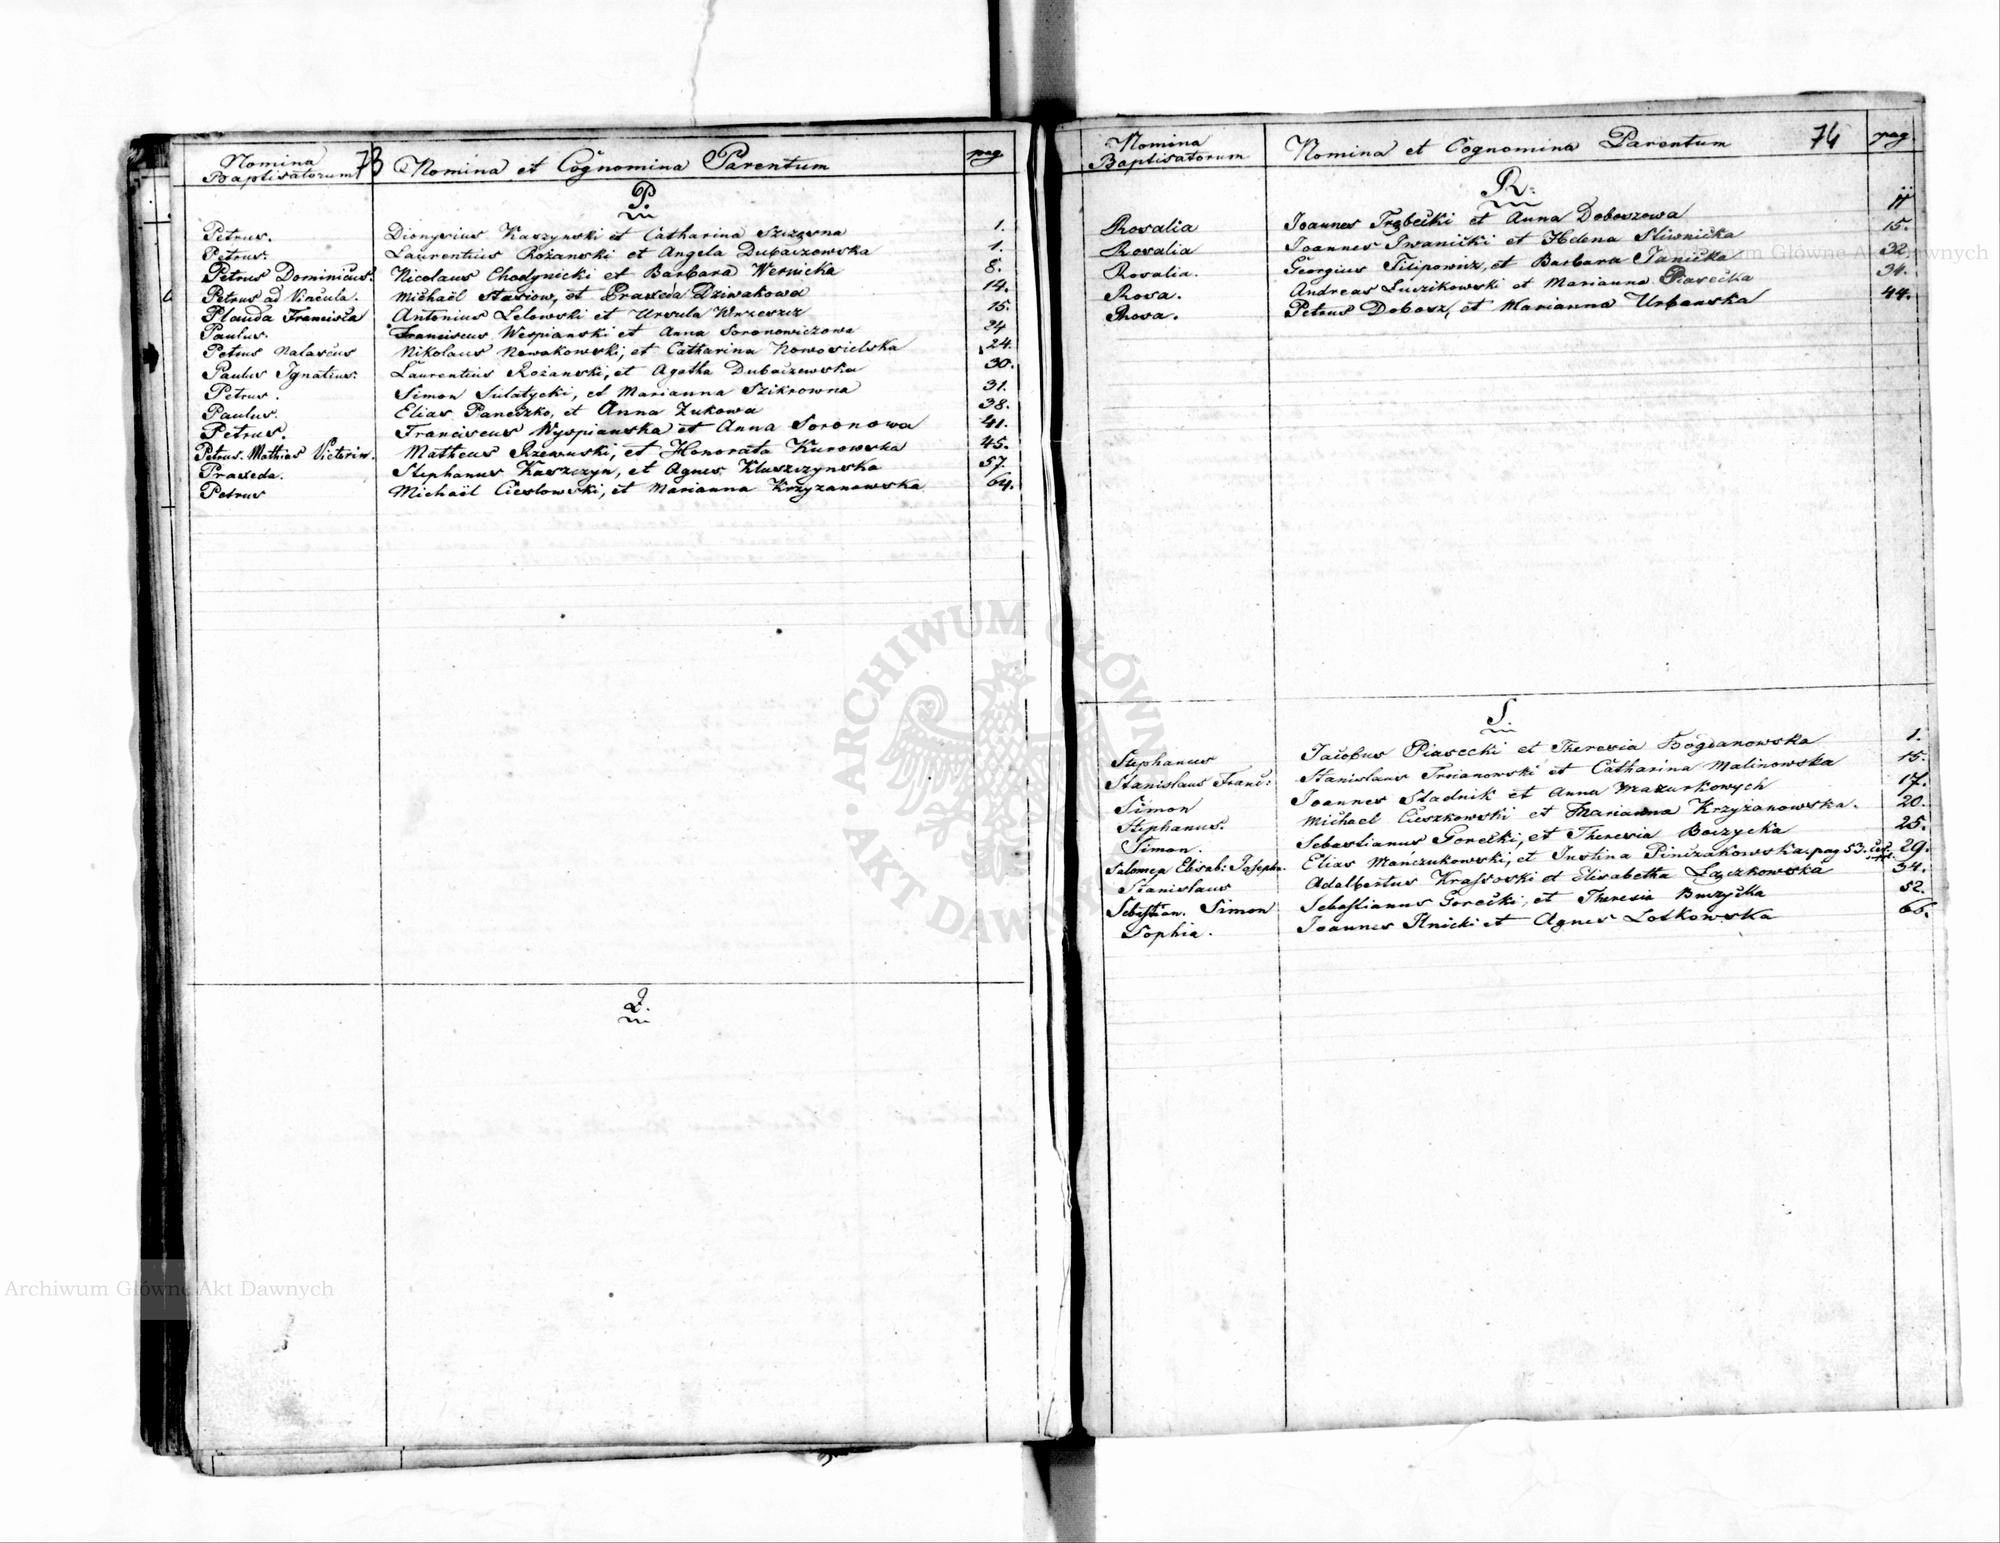 Nomina Baptisatorum 73 Nomina et Cognomina Parentum pag.
P.
Petrus. Dionysius Kaszynski et Catharina Szczesna 1.
Petrus. Laurentius Rożanski et Angela Dubaczowska 1.
Petrus Dominicus. Nicolaus Chodynicki et Barbara Wernicka 8.
Petrus ad Vincula. Michaël Stasiow, et Praxeda Dziwakowa 14.
Plauda Francisca Antonius Lelowski et Ursula Wrzeszcz 15.
Paulus. Franciscus Wespianski et Anna Soronowiczowa 24
Petrus Nalascus Nikolaus Nowakowski, et Catharina Nowosielska 24.
Paulus Ignatius. Laurentius Rożanski, et Agatha Dubaczewska 30.
Petrus. Simon Sulatycki, et Marianna Szikrowna 31.
Paulus. Elias Paneczko, et Anna Zukowa 38.
Petrus. Franciscus Wyspianska et Anna Soronowa 41.
Petrus. Mathias Victorin. Matheus Rzewuski, et Honorata Kurowska 45.
Praxeda. Stephanus Kaszczyn, et Agnes Kluszczynska 57.
Petrus Michaël Cieslowski, et Marianna Krzyzanowska 64.
Q.
Nomina Baptisatorum Nomina et Cognomina Parentum 74 pag.
R.
Rosalia Joannes Trąbecki et Anna Doboszowa 11
Rosalia Joannes Iwanicki et Helena Sliwnicka 15.
Rosalia. Georgius Filipowicz, et Barbara Janicka 32.
Rosa. Andreas Luczikowski et Marianna Piasecka 34.
Rosa. Petrus Dobosz, et Marianna Urbanska 44.
S.
Stephanus Jacobus Piasecki et Theresia Bogdanowska 1.
Stanislaus Franc: Stanislaus Trojanowski et Catharina Malinowska 15.
Simon Joannes Stadnik et Anna Mazurkowych 17.
Stephanus. Michael Cieszkowski et Marianna Krzyżanowska. 20.
Simon. Sebastianus Gorecki, et Theresia Boczycka 25.
Salomea Elisab: Joseph. Elias Mańczukowski, et Justina Pinczakowska pag 53. 29.
Stanislaus Adalbertus Krassoski et Elisabetha Łączkowska 34.
Sebastian. Simon Sebastianus Gorecki, et Theresia Buczycka 52.
Sophia. Joannes Ilnicki et Agnes Lotkowska 66.
ARCHIWUM GŁÓWNE AKT DAWNYCH
Archiwum Główne Akt Dawnych
Archiwum Główne Akt Dawnych